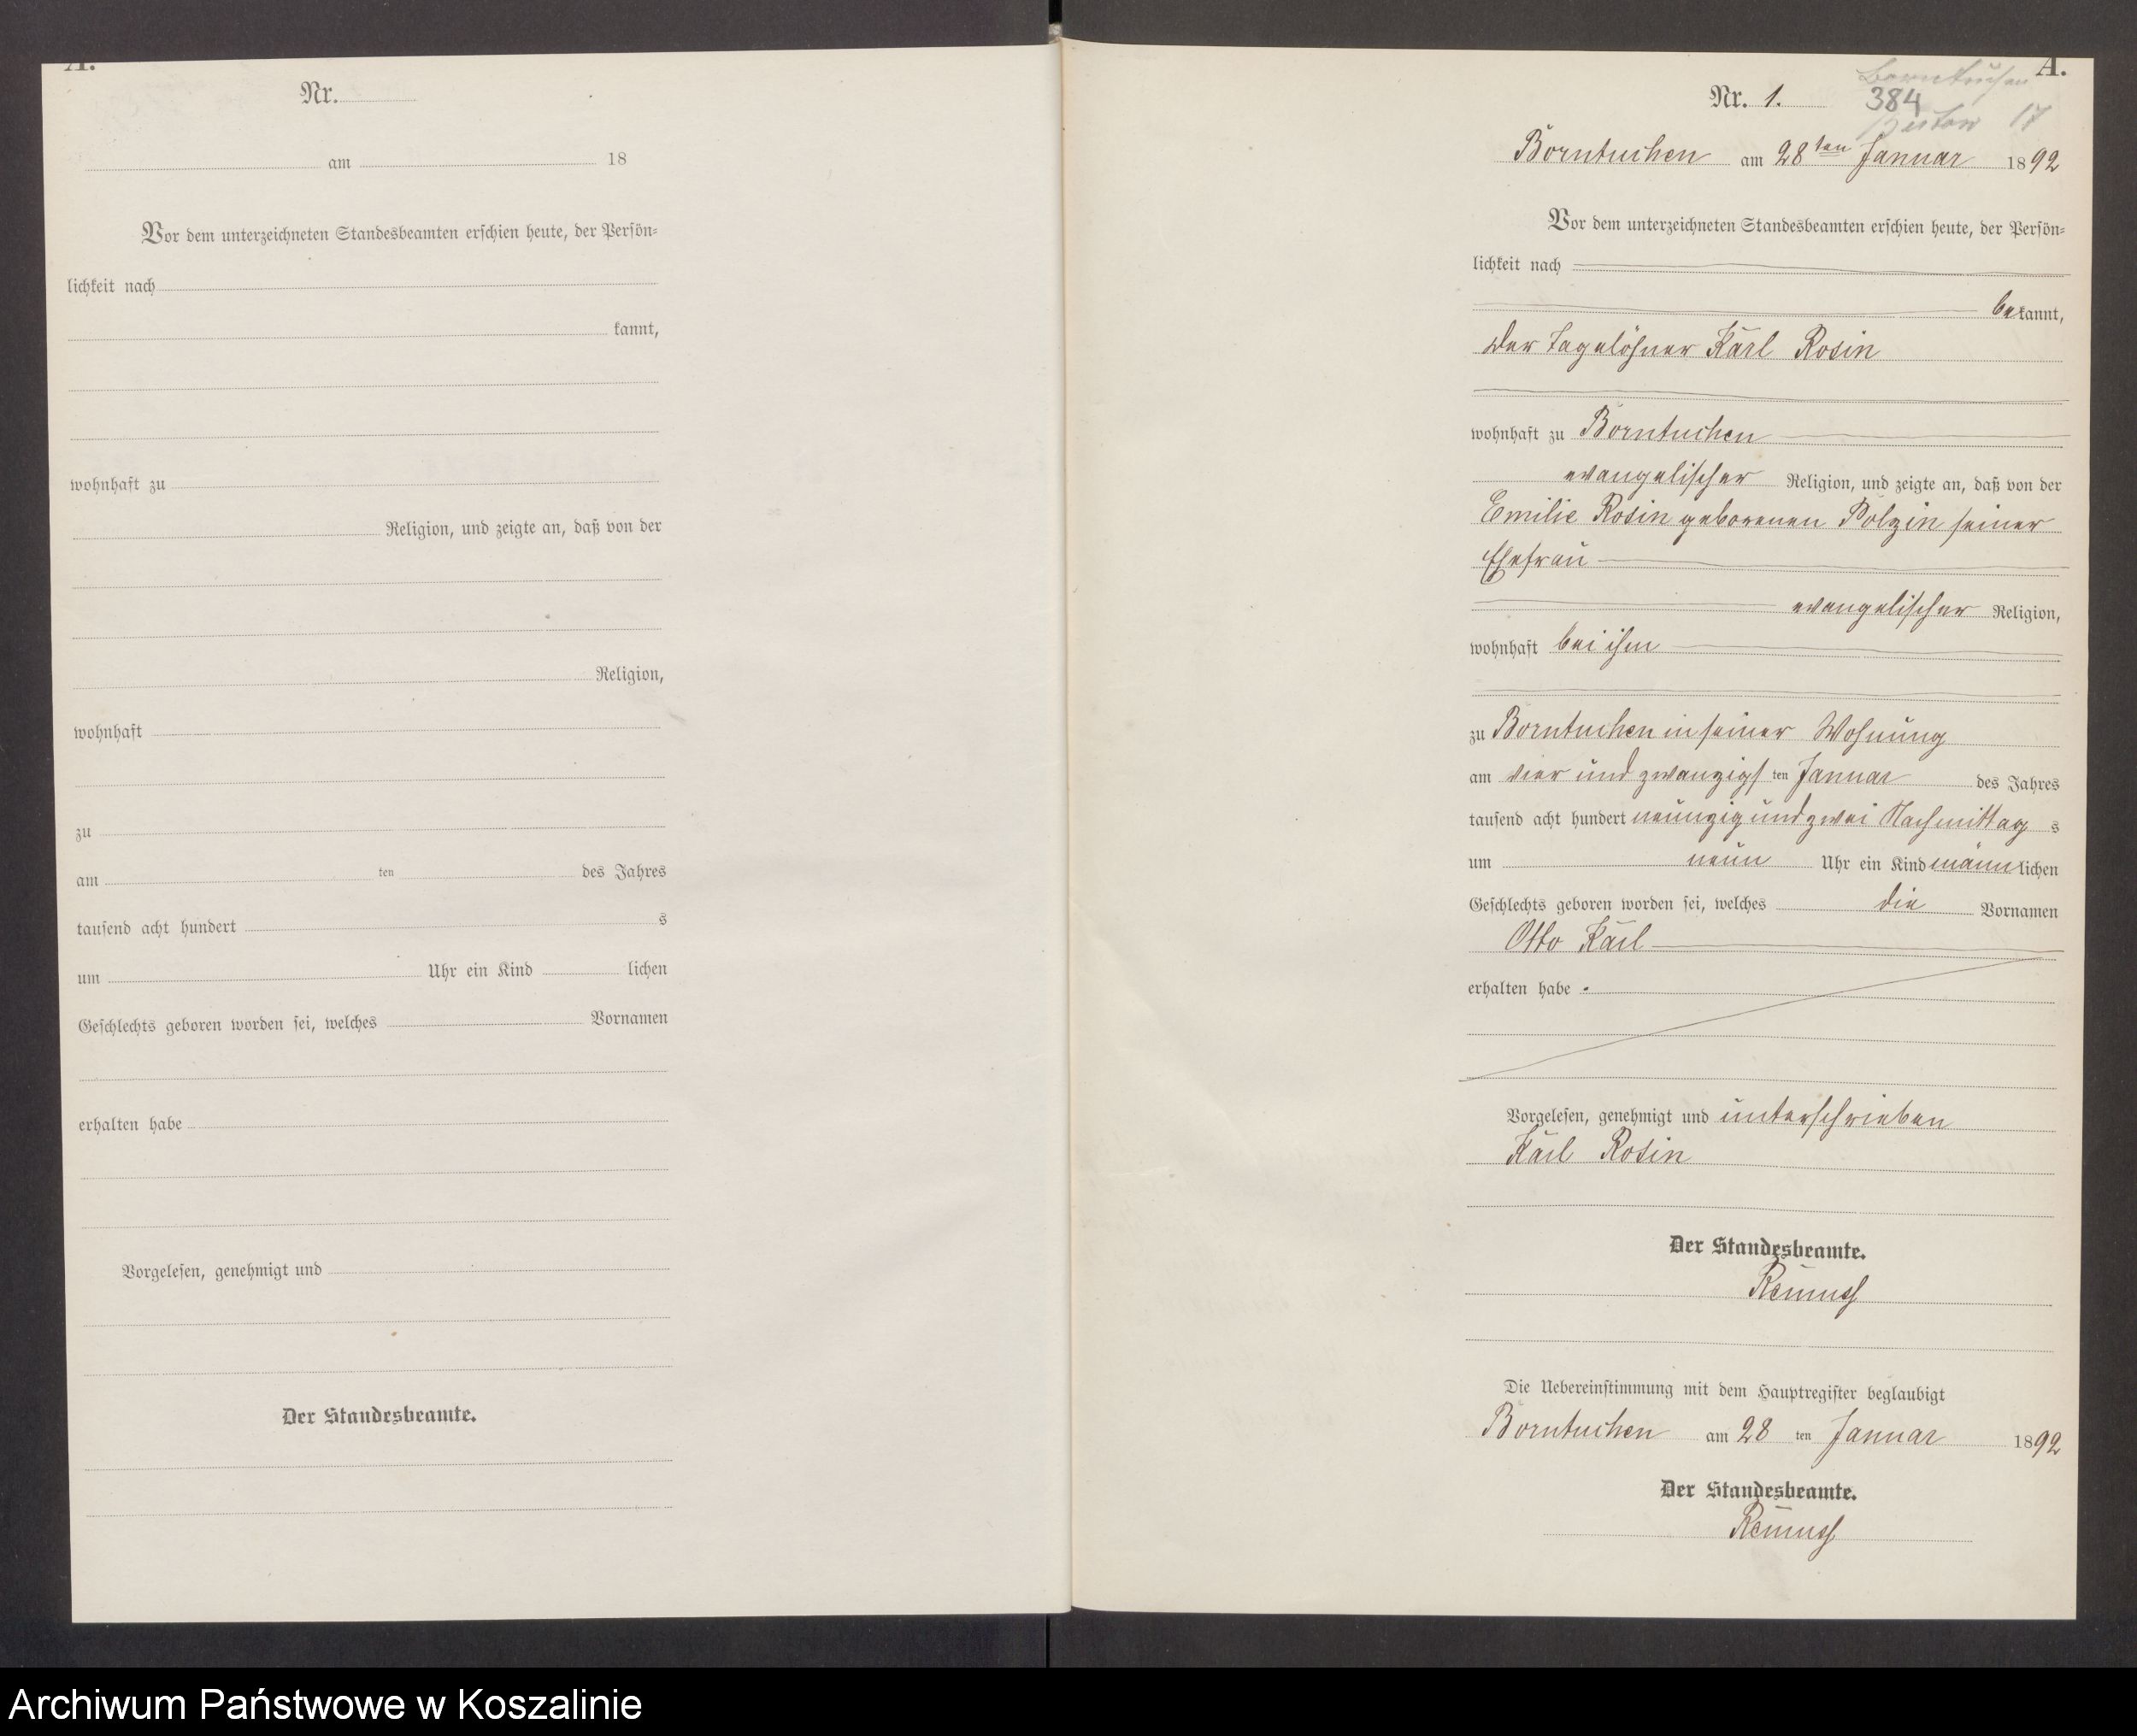 A.
Nr.
am 18
Vor dem unterzeichneten Standesbeamten erschien heute, der Persön-
lichkeit nach
kannt,
wohnhaft zu
Religion, und zeigte an, daß von der
Religion,
wohnhaft
zu
am ten des Jahres
tausend acht hundert s
um Uhr ein Kind lichen
Geschlechts geboren worden sei, welches Vornamen
erhalten habe
Vorgelesen, genehmigt und
Der Standesbeamte.
A.
Borntuchen
Nr. 1. 384
Bütow 17
Borntuchen am 28ten Januar 1892
Vor dem unterzeichneten Standesbeamten erschien heute, der Persön-
lichkeit nach
bekannt,
der Tagelöhner Karl Rosin
wohnhaft zu Borntuchen
evangelischer Religion, und zeigte an, daß von der
Emilie Rosin geborenen Polzin seiner
Ehefrau
evangelischer Religion,
wohnhaft bei ihm
zu Borntuchen in seiner Wohnung
am vier und zwanzigsten Januar des Jahres
tausend acht hundert neunzig und zwei Nachmittags
um neun Uhr ein Kind männlichen
Geschlechts geboren worden sei, welches die Vornamen
Otto Karl
erhalten habe.
Vorgelesen, genehmigt und unterschrieben
Karl Rosin
Der Standesbeamte.
Die Uebereinstimmung mit dem Hauptregister beglaubigt
Borntuchen am 28 ten Januar 1892
Der Standesbeamte.
Archiwum Państwowe w Koszalinie